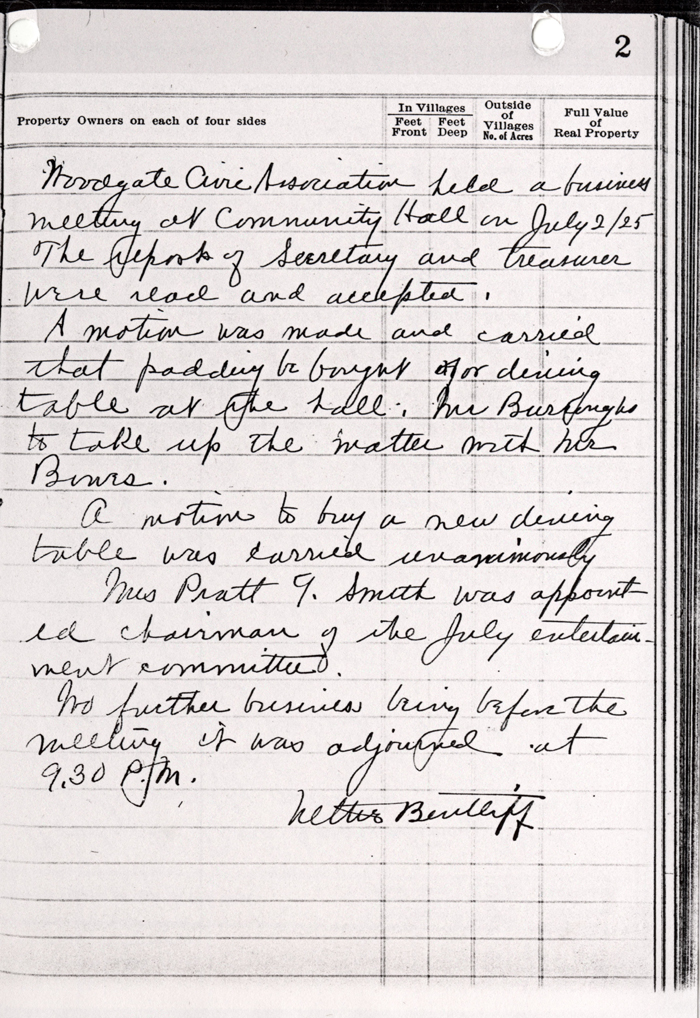 2
Property Owners on each of four sides
In Villages
Feet Front
Feet Deep
Outside of Villages No. of Acres
Full Value of Real Property
Woodgate Civic Association held a business
meeting at Community Hall on July 2/25
The reports of Secretary and treasurer
were read and accepted.
A motion was made and carried
that padding be bought for dining
table at the hall. Mr Burroughs
to take up the matter with Mr
A motion to buy a new dining
table was carried unanimously
Mrs Pratt G. Smith was appoint-
ed chairman of the July entertain-
ment committee.
No further business being before the
meeting it was adjourned at
9.30 P.M.
Bentliff